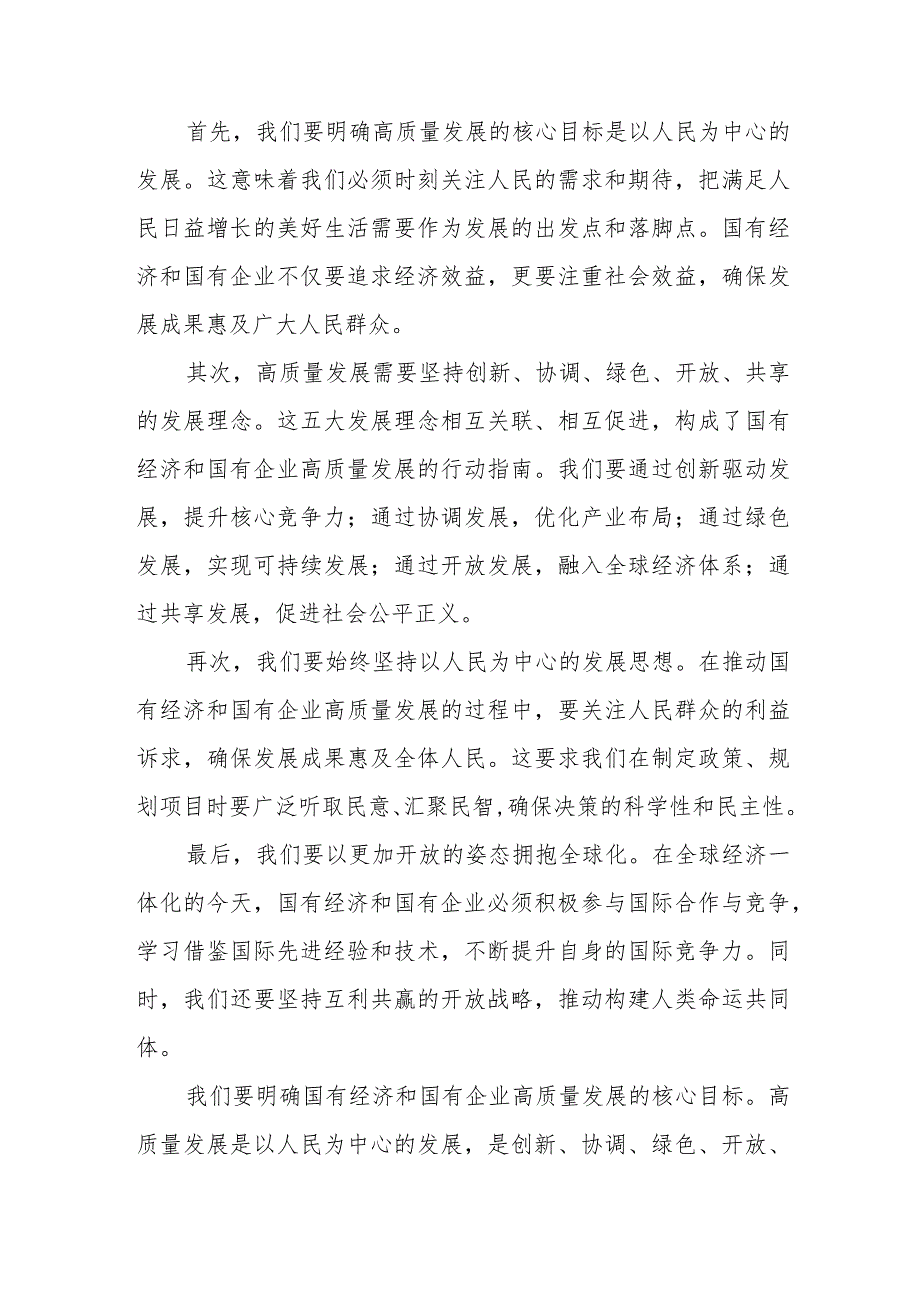 首先，我们要明确高质量发展的核心目标是以人民为中心的
发展。这意味着我们必须时刻关注人民的需求和期待，把满足人
民日益增长的美好生活需要作为发展的出发点和落脚点。国有经
济和国有企业不仅要追求经济效益，更要注重社会效益，确保发
展成果惠及广大人民群众。
其次，高质量发展需要坚持创新、协调、绿色、开放、共享
的发展理念。这五大发展理念相互关联、相互促进，构成了国有
经济和国有企业高质量发展的行动指南。我们要通过创新驱动发
展，提升核心竞争力；通过协调发展，优化产业布局；通过绿色
发展，实现可持续发展；通过开放发展，融入全球经济体系；通
过共享发展，促进社会公平正义。
再次，我们要始终坚持以人民为中心的发展思想。在推动国
有经济和国有企业高质量发展的过程中，要关注人民群众的利益
诉求，确保发展成果惠及全体人民。这要求我们在制定政策、规
划项目时要广泛听取民意、汇聚民智,确保决策的科学性和民主性。
最后，我们要以更加开放的姿态拥抱全球化。在全球经济一
体化的今天，国有经济和国有企业必须积极参与国际合作与竞争，
学习借鉴国际先进经验和技术，不断提升自身的国际竞争力。同
时，我们还要坚持互利共赢的开放战略，推动构建人类命运共同
体。
我们要明确国有经济和国有企业高质量发展的核心目标。高
质量发展是以人民为中心的发展，是创新、协调、绿色、开放、